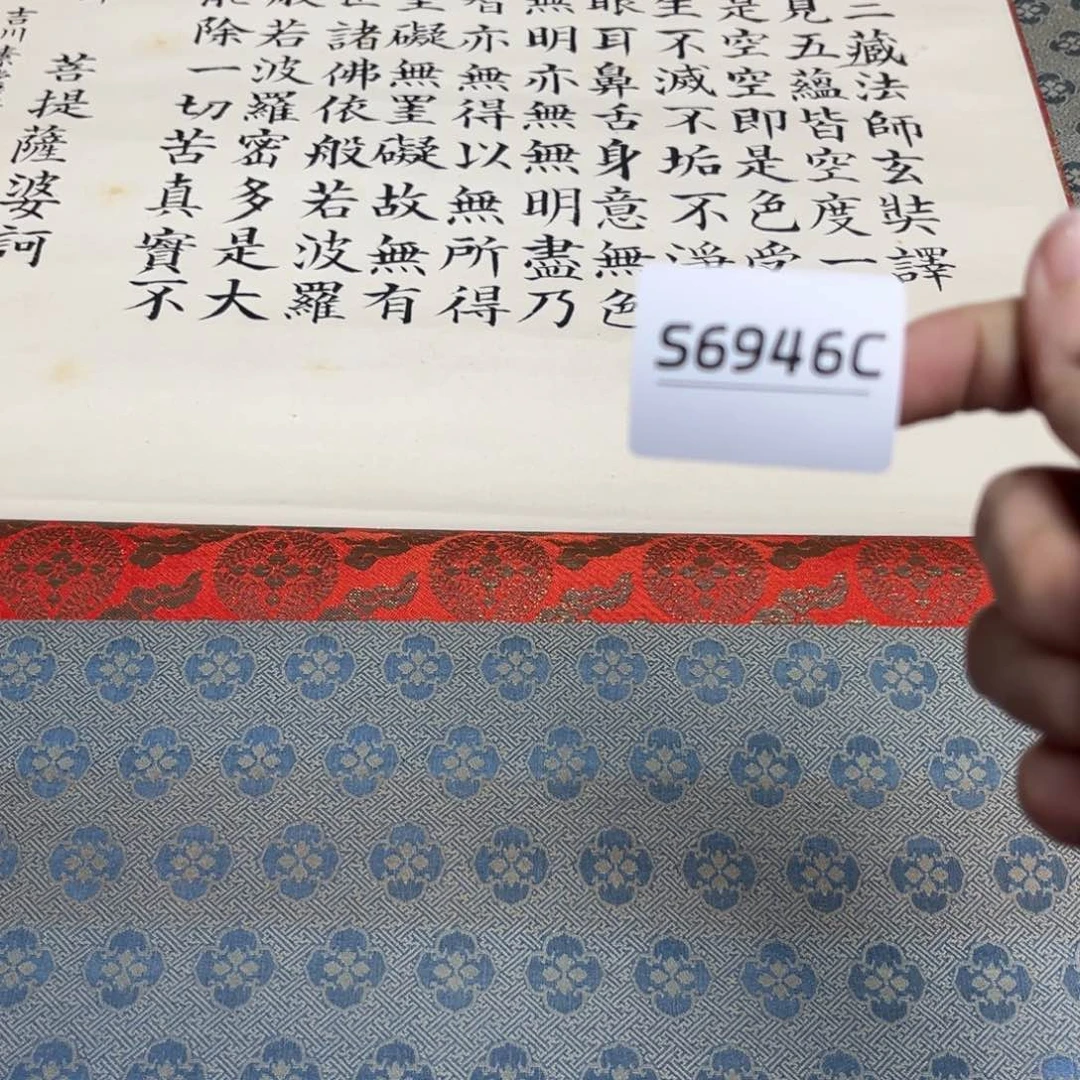 三藏法師玄奘譯
見五蘊皆空度一
是空空即是色受
生不滅不垢不淨
眼耳鼻舌身意無色
無明亦無無明盡乃
智亦無得以無所得
罣礙無罣礙故無有
世諸佛依般若波羅
般若波羅密多是大
能除一切苦真實不
菩提薩婆訶
吉川
S6946C